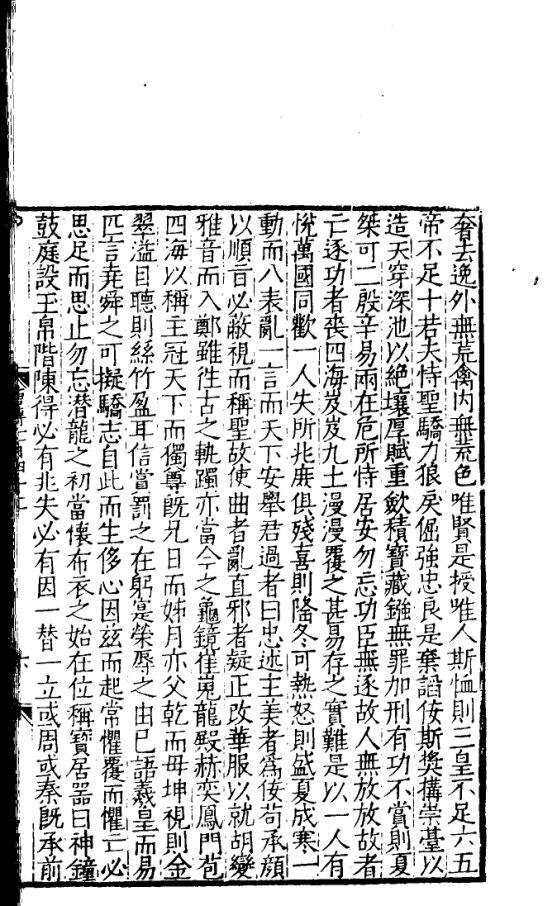 奢去逸外無荒禽內無荒色唯賢是授唯人斯恤則三皇不足六五
帝不足十若夫恃聖驕力狠戾倔強忠良是棄諂佞斯獎搆崇臺以
造天穿深池以絕壤厚賦重斂積寶藏鏹無罪加刑有功不賞則夏
桀可二殷辛易兩在危所恃居安勿忘功臣無逐故人無放放故者
亡逐功者喪四海岌岌九土漫漫覆之甚易存之實難是以一人有
悅萬國同歡一人失所兆庶俱殘喜則隆冬可熱怒則盛夏成寒一
動而八表亂一言而天下安舉君過者曰忠述主美者為佞苟承顏
以順言必蔽視而稱聖故使曲者亂直邪者疑正改華服以就胡變
雅音而入鄭雖徃古之軌躅亦當今之龜鏡崔嵬龍殿赫奕鳳門苞
四海以稱主冠天下而獨尊既兄日而姊月亦父乾而母坤視則金
翠溢目聽則絲竹盈耳信當罰之在躬寔榮辱之由已語羲皇而易
匹言堯舜之可擬驕志自此而生侈心因茲而起常懼覆而懼亡必
思足而思止勿忘潛龍之初當懷布衣之始在位稱寶居器曰神鐘
鼓庭設王帛階陳得必有兆失必有因一替一立或周或秦既承前